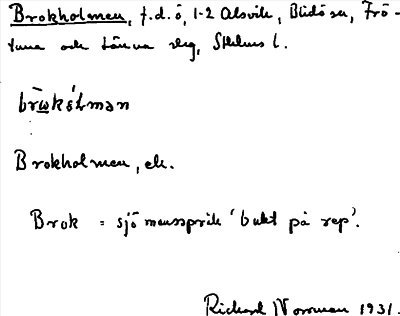 Brokholmen, f.d. ö, 1-2 Alsvik, Blidö sn, Frö-
tuna och Länna slg, Sthlms l.
brωkɷ́lmən
Brokholmen, ek.
Brok = sjömansspråk 'bukt på rep'.
Richard Norrman 1931.